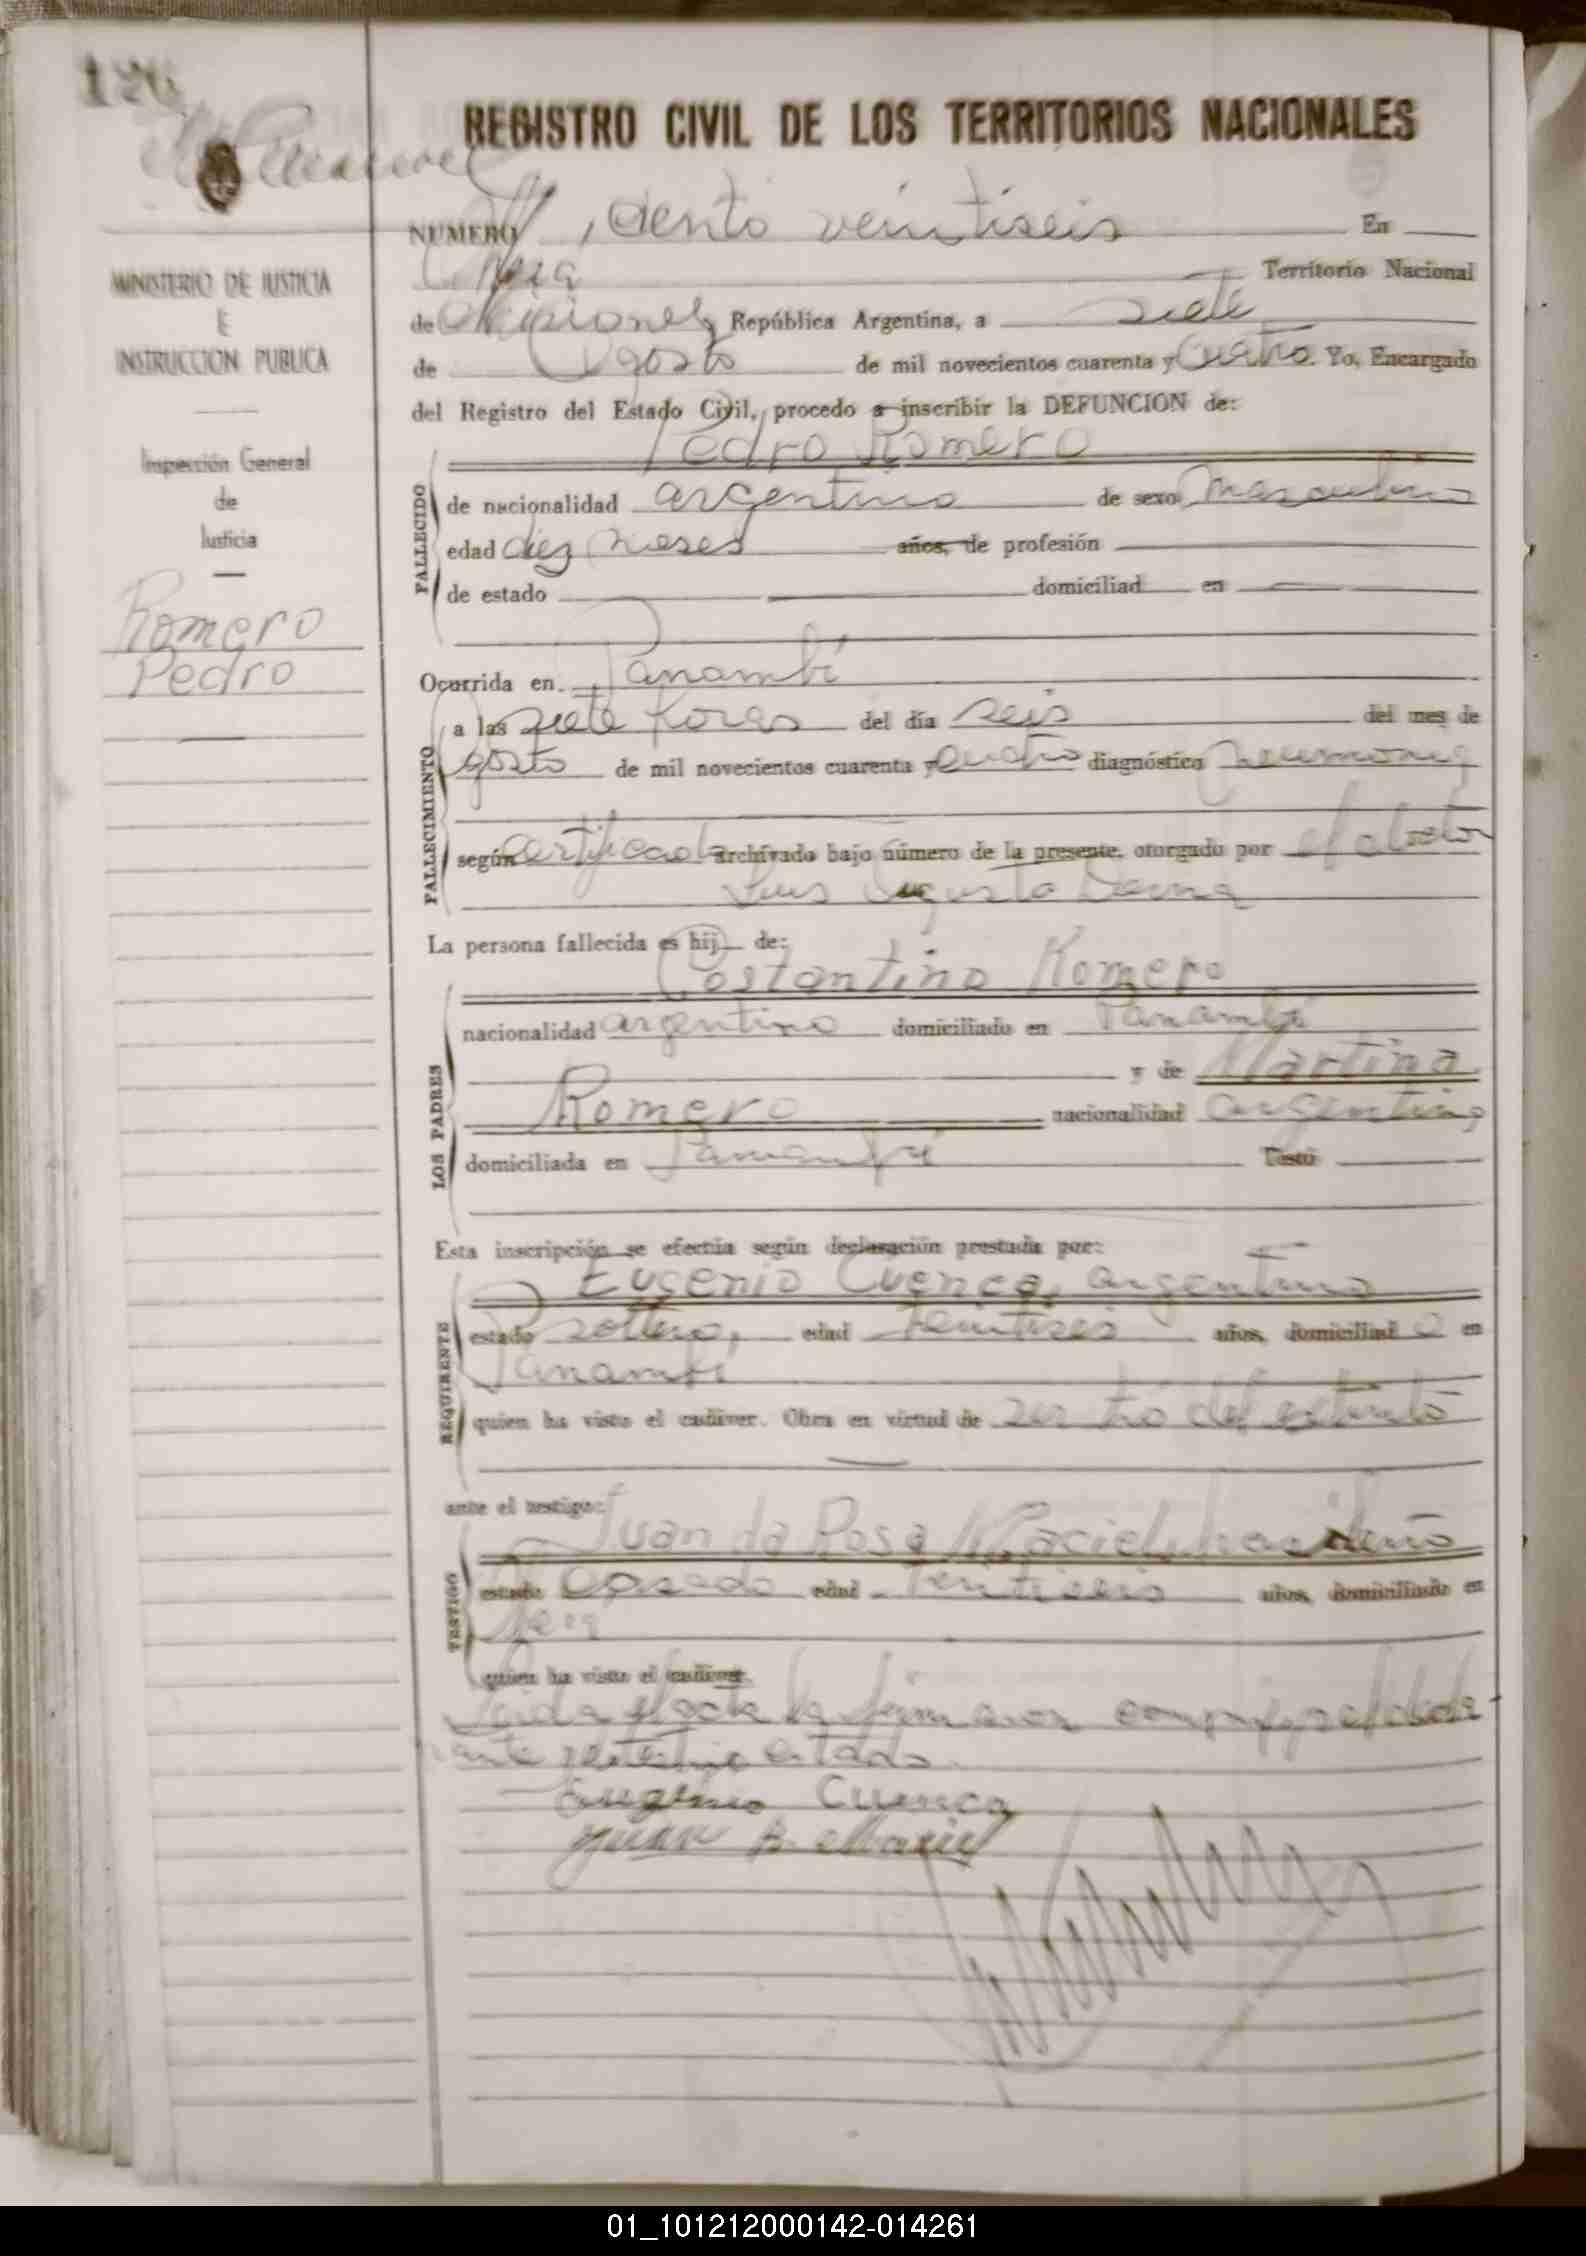 126
REGISTRO CIVIL DE LOS TERRITORIOS NACIONALES
NUMERO ciento veintiseis En
Territorio Nacional
de Misiones, República Argentina, a siete
de Agosto de mil novecientos cuarenta y cuatro. Yo, Encargado
del Registro del Estado Civil, procedo a inscribir la DEFUNCION de:
Pedro Romero
FALLECIDO
de nacionalidad argentino de sexo masculino
edad diez meses años, de profesión
de estado domiciliad en
Ocurrida en Panambí
FALLECIMIENTO
a las siete horas del día seis del mes de
Agosto de mil novecientos cuarenta y cuatro diagnóstico neumonia
según certificado archivado bajo número de la presente, otorgado por el doctor
Luis Augusto
La persona fallecida es hij de:
Costantino Romero
LOS PADRES
nacionalidad argentino domiciliado en Panambí
y de Martina
Romero nacionalidad argentina
domiciliada en Panambí Testó
Esta inscripción se efectúa según declaración prestada por:
Eugenio Cuenca, argentino
REQUIRENTE
estado soltero, edad veintiseis años, domiciliad o en
Panambí
quien ha visto el cadáver. Obra en virtud de ser tio del extinto
ante el testigo:
Juan da Rosa Maciel, brasileño
TESTIGO
estado Casado edad veintiseis años, domiciliado en
quien ha visto el cadáver.
Leida el acta la firmaron
Eugenio Cuenca
Juan R. Maciel
MINISTERIO DE JUSTICIA
E
INSTRUCCION PUBLICA
Inspección General
de
Justicia
Romero
Pedro
01_101212000142-014261